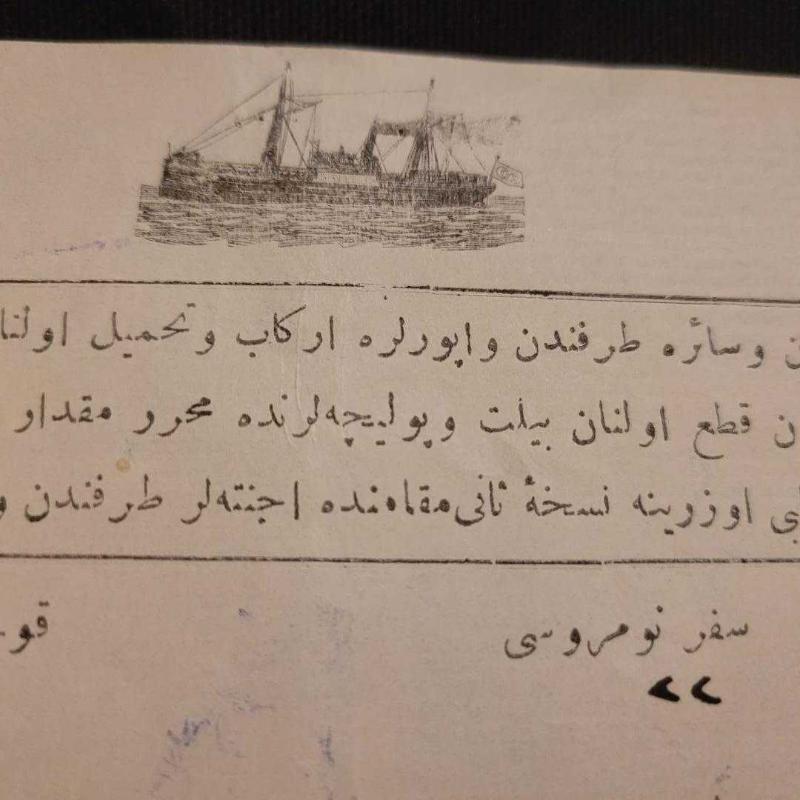 وسائره طرفندن واپورلره اركاب وتحميل اولنا
قطع اولنان بيلت وپوليچه‌لرنده محرر مقدار
اوزرينه نسخۀ ثانى مقامنده اجنته‌لر طرفندن و
سفر نومروسى
٢٢